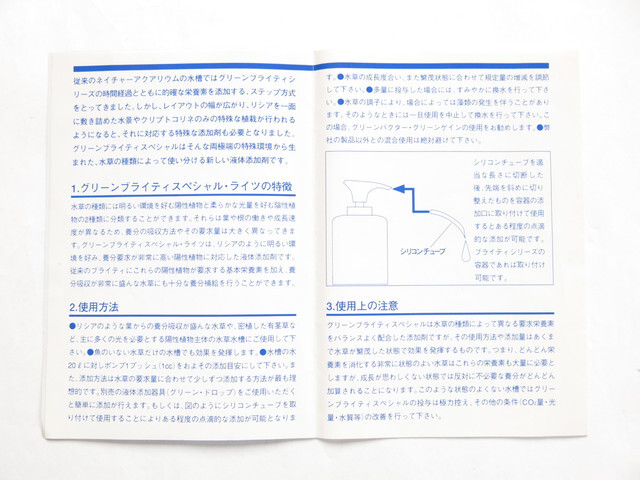 従来のネイチャーアクアリウムの水槽ではグリーンブライティシ
リーズの時間経過とともに的確な栄養素を添加する、ステップ方式
をとってきました。しかし、レイアウトの幅が広がり、リシアを一面
に敷き詰めた水景やクリプトコリネのみの特殊な植栽が行われる
ようになると、それに対応する特殊な添加剤も必要となりました。
グリーンブライティスペシャルはそんな両極端の特殊環境から生
まれた、水草の種類によって使い分ける新しい液体添加剤です。
1.グリーンブライティスペシャル・ライツの特徴
水草の種類には明るい環境を好む陽性植物と柔らかな光量を好む陰性植
物の2種類に分類することができます。それらは葉や根の働きや成長速
度が異なるため、養分の吸収方法やその要求量は大きく異なってきま
す。グリーンブライティスペシャル・ライツは、リシアのように明るい環
境を好み、養分要求が非常に高い陽性植物に対応した液体添加剤です。
従来のブライティにこれらの陽性植物が要求する基本栄養素を加え、養
分吸収が非常に盛んな水草にも十分な養分補給を行うことができます。
2.使用方法
●リシアのような葉からの養分吸収が盛んな水草や、密植した有茎草な
ど、主に多くの光を必要とする陽性植物主体の水草水槽にご使用して下
さい。●魚のいない水草だけの水槽でも効果を発揮します。●水槽の水
20ℓに対しポンプ1プッシュ(1cc)をおよその添加目安にして下さい。ま
た、添加方法は水草の要求量に合わせて少しずつ添加する方法が最も理
想的です。別売の液体添加器具(グリーン・ドロップ)をご使用いただく
と簡単に添加が行えます。もしくは、図のようにシリコンチューブを取
り付けて使用することによりある程度の点滴的な添加が可能となりま
す。●水草の成長度合い、また繁茂状態に合わせて規定量の増減を調節
して下さい。●多量に投与した場合には、すみやかに換水を行って下さ
い。●水草の調子により、場合によっては藻類の発生を伴うことがあり
ます。そのようなときには一旦使用を中止して換水を行って下さい。こ
の場合、グリーンバクター・グリーンゲインの使用をお勧めします。●弊
社の製品以外との混合使用は絶対避けて下さい。
シリコンチューブ
シリコンチューブを適
当な長さに切断した
後、先端を斜めに切り
整えたものを容器の添
加口に取り付けて使用
するとある程度の点滴
的な添加が可能です。
ブライティシリーズの
容器であれば取り付け
可能です。
3.使用上の注意
グリーンブライティスペシャルは水草の種類によって異なる要求栄養素
をバランスよく配合した添加剤ですが、その使用方法や添加量はあくま
で水草が繁茂した状態で効果を発揮するものです。つまり、どんどん栄
養素を消化する非常に状態のよい水草はこれらの栄養素も大量に必要と
しますが、成長が思わしくない状態では反対に不必要な養分がどんどん
加算されることになります。このような状態のよくない水槽ではグリー
ンブライティスペシャルの投与は極力控え、その他の条件(CO₂量・光
量・水質等)の改善を行って下さい。